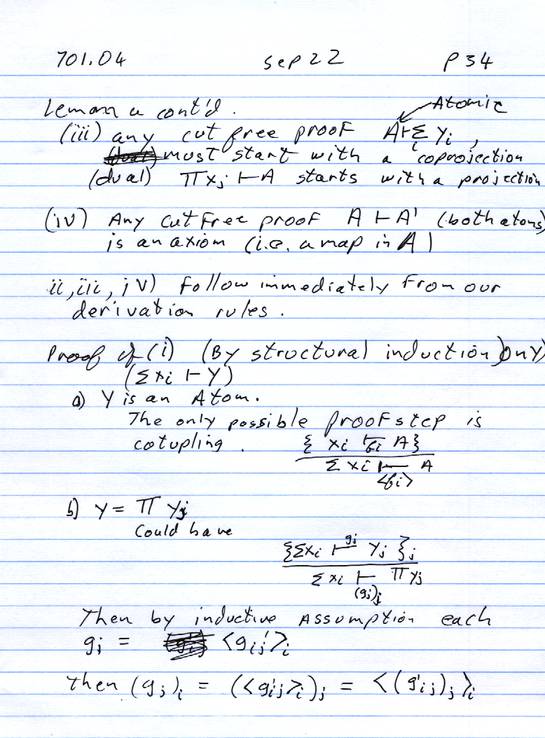 701.04 Sep 22 P 34
Lemma a cont'd.
Atomic
(iii) any cut free proof A ⊢ Σ Yi,
must start with a coprojection
(dual) Π Xj ⊢ A starts with a projection
(iv) Any cut free proof A ⊢ A' (both atoms)
is an axiom (i.e. a map in A)
ii, iii, iv) Follow immediately from our
derivation rules.
Proof of (i) (By structural induction) on Y)
(Σ xi ⊢ Y)
a) Y is an Atom.
The only possible proof step is
cotupling. { xi ⊢fi A}
Σ xi ⊢ A
<fi>
b) Y = Π Yj
Could have
{Σxi ⊢gj Yj }j
Σ xi ⊢ Π Yj
(gj)j
Then by inductive Assumption each
gj = <g'ij>i
Then (gj)i = (<g'ij>i)j = <(g'ij)j>i